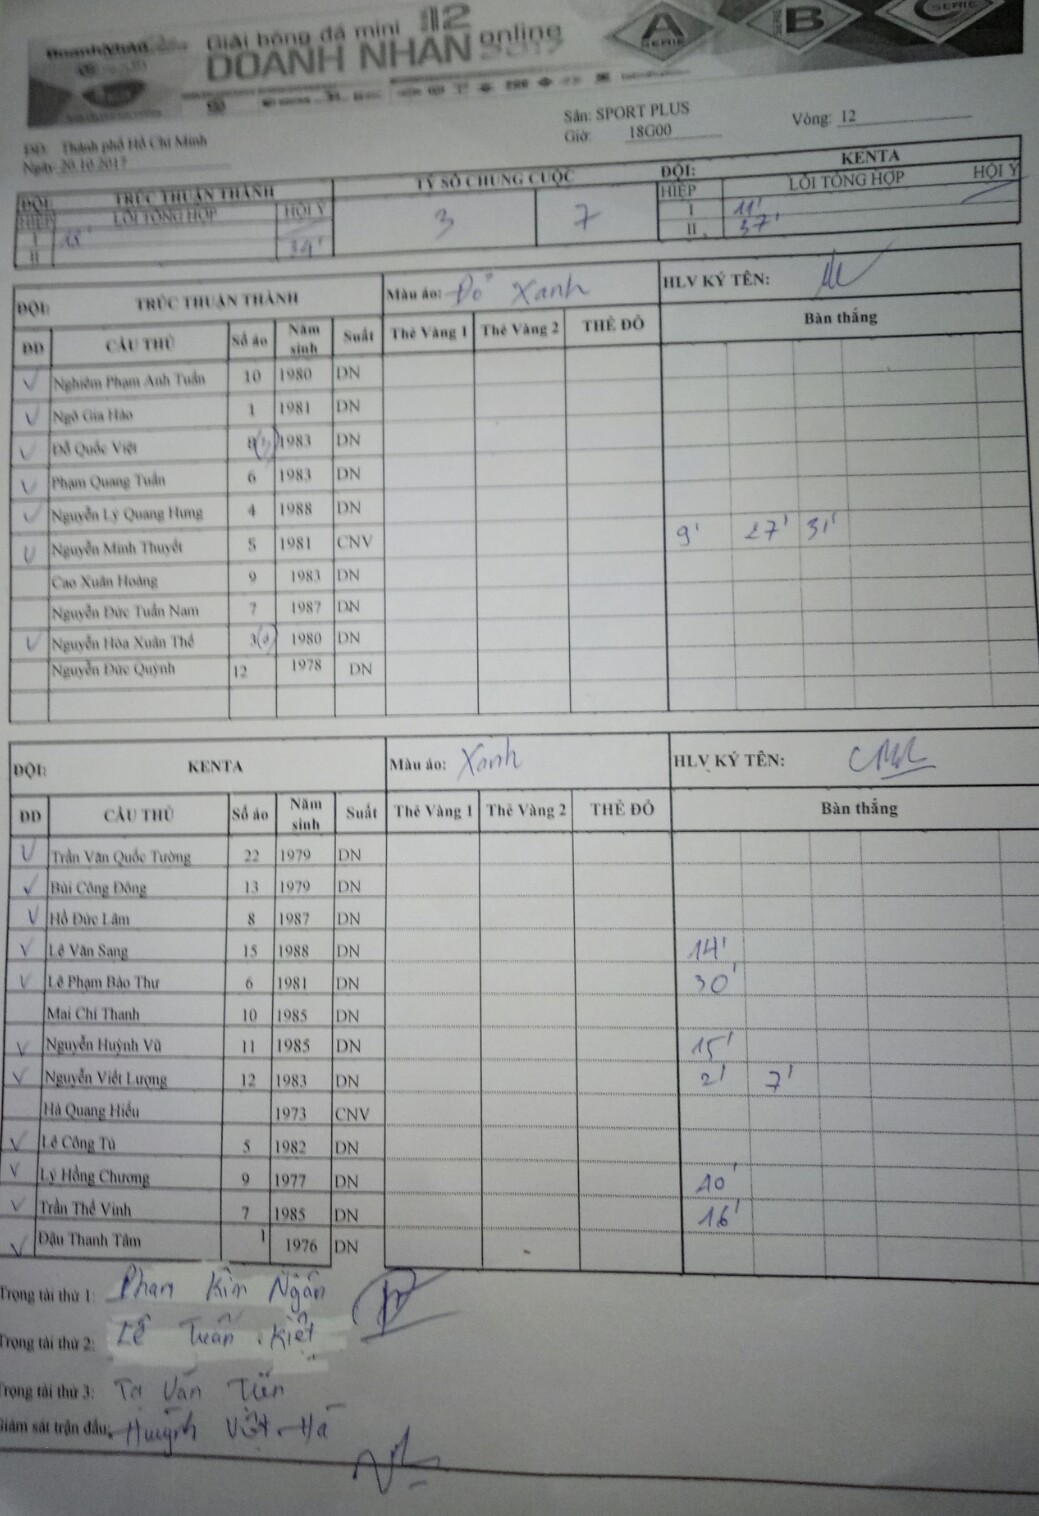 Giải bóng đá mini 12
DOANH NHÂN online 2017
A SERIE B C SERIE
Sân: SPORT PLUS
Vòng: 12
Giờ: 18G00
ĐĐ: Thành phố Hồ Chí Minh
Ngày: 20.10.2017
ĐỘI: TRÚC THUẬN THÀNH TỶ SỐ CHUNG CUỘC ĐỘI: KENTA
HIỆP LỖI TỔNG HỢP HỘI Ý 3 7 HIỆP LỖI TỔNG HỢP HỘI Ý
I I 11'
II 34' II 37'
ĐỘI: TRÚC THUẬN THÀNH Màu áo: Đỏ Xanh HLV KÝ TÊN:
ĐD CẦU THỦ Số áo Năm sinh Suất Thẻ Vàng 1 Thẻ Vàng 2 THẺ ĐỎ Bàn thắng
Nghiêm Phạm Anh Tuấn 10 1980 DN
Ngô Gia Hào 1 1981 DN
Đỗ Quốc Việt 8 1983 DN
Phạm Quang Tuấn 6 1983 DN
Nguyễn Lý Quang Hưng 4 1988 DN
Nguyễn Minh Thuyết 5 1981 CNV 9' 27' 31'
Cao Xuân Hoàng 9 1983 DN
Nguyễn Đức Tuấn Nam 7 1987 DN
Nguyễn Hòa Xuân Thế 3 1980 DN
Nguyễn Đức Quỳnh 12 1978 DN
ĐỘI: KENTA Màu áo: Xanh HLV KÝ TÊN:
ĐD CẦU THỦ Số áo Năm sinh Suất Thẻ Vàng 1 Thẻ Vàng 2 THẺ ĐỎ Bàn thắng
Trần Văn Quốc Tường 22 1979 DN
Bùi Công Đông 13 1979 DN
Hồ Đức Lâm 8 1987 DN
Lê Văn Sang 15 1988 DN 14'
Lê Phạm Bảo Thư 6 1981 DN 30'
Mai Chí Thanh 10 1985 DN
Nguyễn Huỳnh Vũ 11 1985 DN 15'
Nguyễn Viết Lượng 12 1983 DN 2' 7'
Hà Quang Hiếu 1973 CNV
Lê Công Tú 5 1982 DN
Lý Hồng Chương 9 1977 DN 10'
Trần Thế Vinh 7 1985 DN 16'
Đậu Thanh Tâm 1 1976 DN
Trọng tài thứ 1: Phan Kim Ngân
Trọng tài thứ 2: Lê Tuấn Kiệt
Trọng tài thứ 3: Tạ Văn Tiến
Giám sát trận đấu: Huỳnh Việt Hà